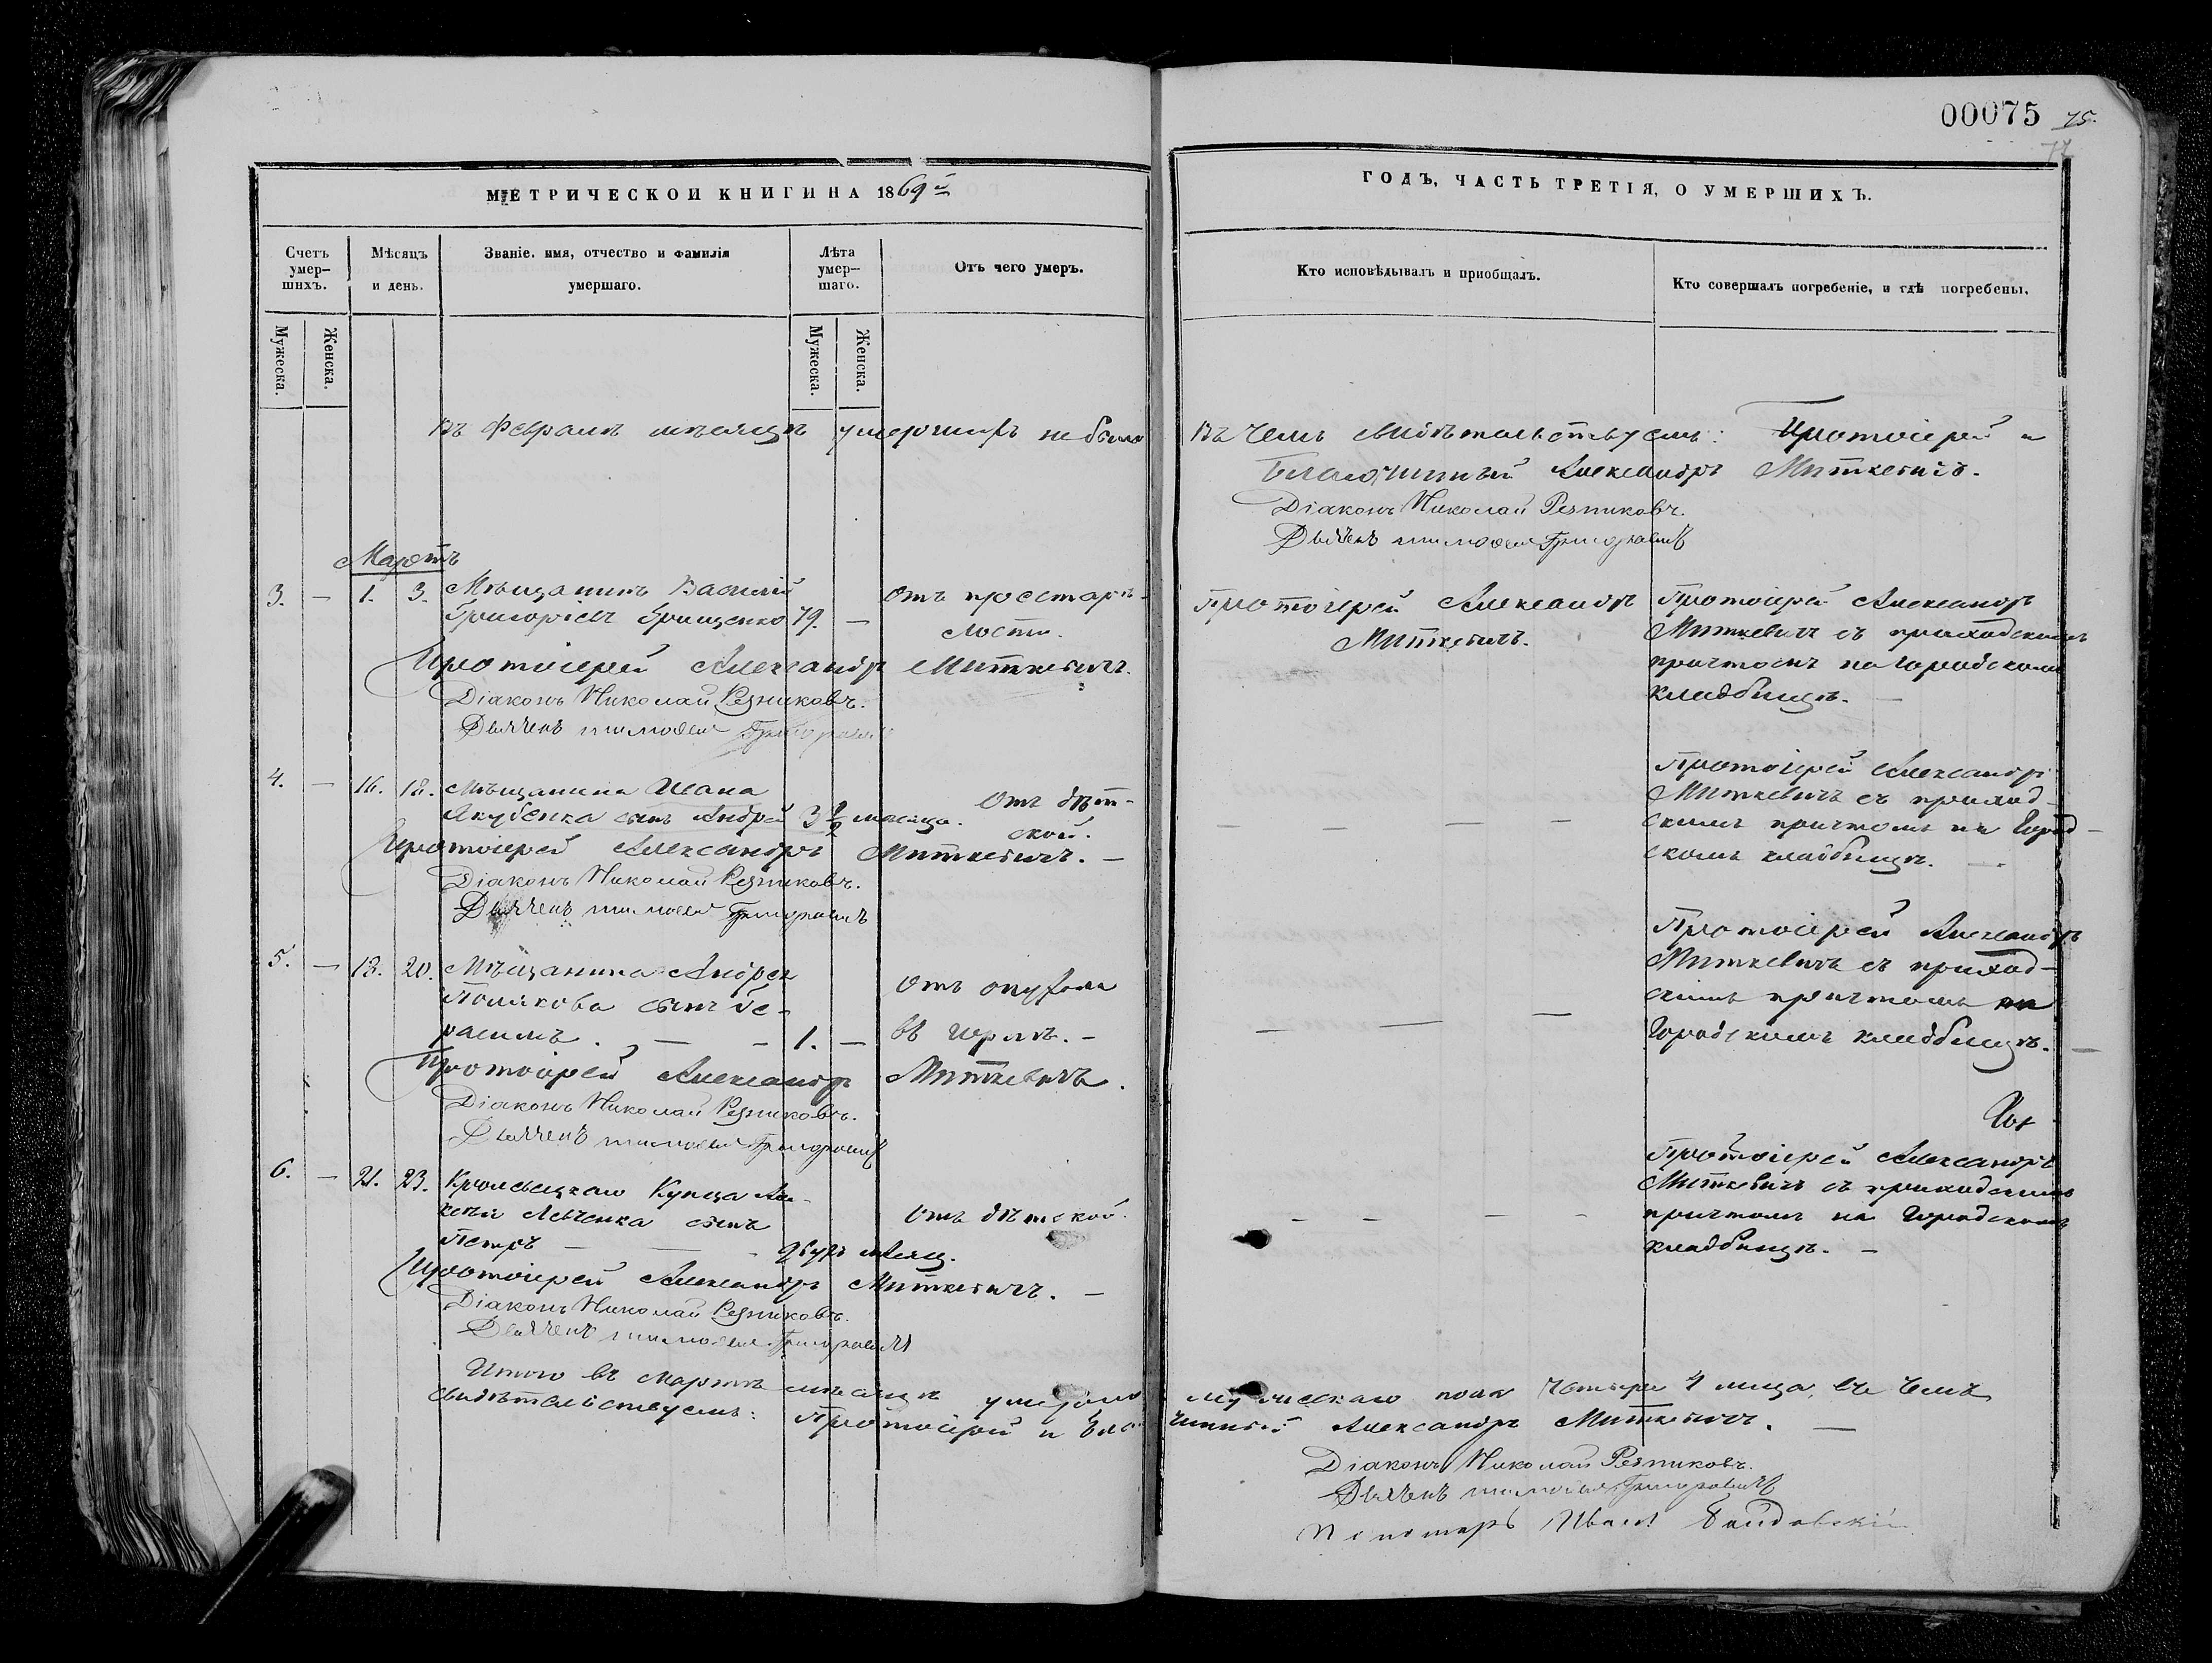 00075 75.
77
МЕТРИЧЕСКОЙ КНИГИ НА 1869й
ГОДЪ, ЧАСТЬ ТРЕТІЯ, О УМЕРШИХЪ.
Счетъ умер-
шихъ.
Мѣсяцъ
и день.
Званіе, имя, отчество и фамилія
умершаго.
Лѣта
умер-
шаго.
Отъ чего умеръ.
Кто исповѣдывалъ и пріобщалъ.
Кто совершалъ погребеніе, и гдѣ погребены.
Мужеска.
Женска.
Мужеска.
Женска.
Въ Февралѣ мѣсяцѣ умершихъ небыло
Въ чемъ свидѣтельствуемъ: Протоіерей и
Благочинный Александръ Миткевичъ.
Діаконъ Николай Резниковъ.
Дьячекъ Тимофей Григоровичъ
Мартъ
3. — 1. 3. Мѣщанинъ Василій
Григоріевъ Грищенко 79. —
Отъ престарѣ-
лости.
Протоіерей Александръ
Миткевичъ.
Протоіерей Александръ
Миткевичъ съ приходскимъ
причтомъ на городскомъ
кладбищѣ. —
Протоіерей Александръ Миткевичъ.
Діаконъ Николай Резниковъ.
Дьячекъ Тимофей Григоровичъ
4. — 16. 18. Мѣщанина Ивана
Якубенка сынъ Андрей 3 1/2 мѣсяца.
Отъ дѣт-
ской.
— — — —
Протоіерей Александръ
Миткевичъ съ приход-
скимъ причтомъ на Город-
скомъ кладбищѣ. —
Протоіерей Александръ Миткевичъ. —
Діаконъ Николай Резниковъ.
Дьячекъ Тимофей Григоровичъ
5. — 18. 20. Мѣщанина Андрея
Полякова сынъ Ге-
расимъ. — — 1. —
Отъ опухоли
въ горлѣ. —
— — —
Протоіерей Александръ
Миткевичъ съ приход-
скимъ причтомъ на
Городскомъ кладбищѣ. —
Протоіерей Александръ Миткевичъ.
Діаконъ Николай Резниковъ.
Дьячекъ Тимофей Григоровичъ
6. — 21. 23. Кролевецкаго Купца Але-
ксѣя Левченка сынъ
Петръ — — двухъ мѣсяц.
Отъ дѣтской.
— — — —
Протоіерей Александръ
Миткевичъ съ приходскимъ
причтомъ на Городскомъ
кладбищѣ. —
Протоіерей Александръ Миткевичъ. —
Діаконъ Николай Резниковъ.
Дьячекъ Тимофей Григоровичъ
Итого въ Мартѣ мѣсяцѣ умерло мужескаго пола четыре 4 лица, въ чемъ
свидѣтельствуемъ: Протоіерей и Благочинный Александръ Миткевичъ. —
Діаконъ Николай Резниковъ.
Дьячекъ Тимофей Григоровичъ
Пономарь Иванъ